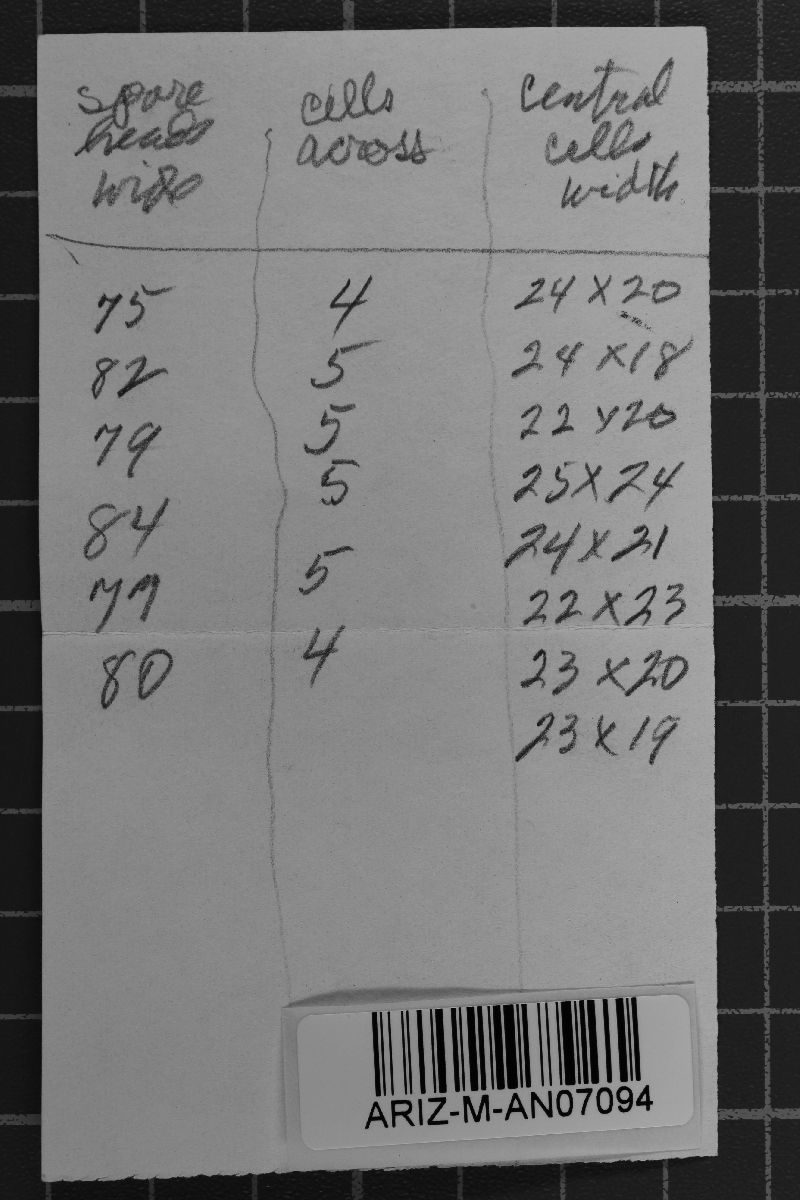 spore heads wide
cells across
central cells width
75 4 24 X 20
82 5 24 X 18
79 5 22 X 20
84 5 25 X 24
79 5 24 X 21
80 4 22 X 23
23 X 20
23 X 19
ARIZ-M-AN07094